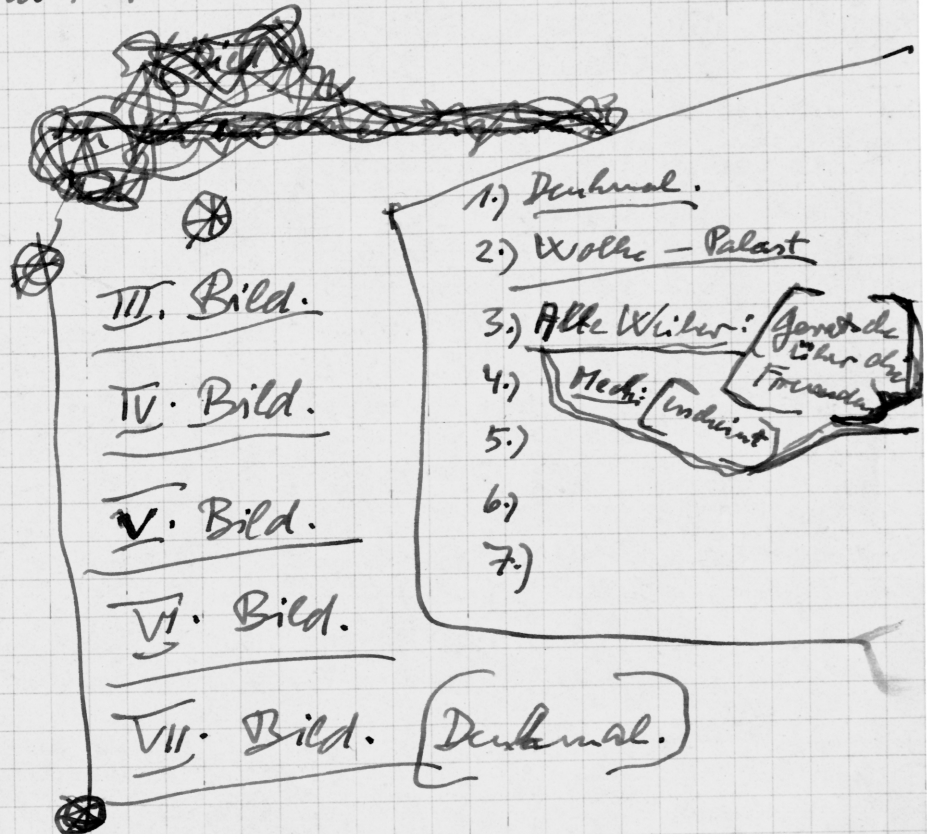 III. Bild.
IV. Bild.
V. Bild.
VI. Bild.
VII. Bild. [Denkmal.]
1.) Denkmal.
2.) Wolke – Palast
3.) Alte Weiber: [
über die
Fremden]
4.) [erscheint]
5.)
6.)
7.)